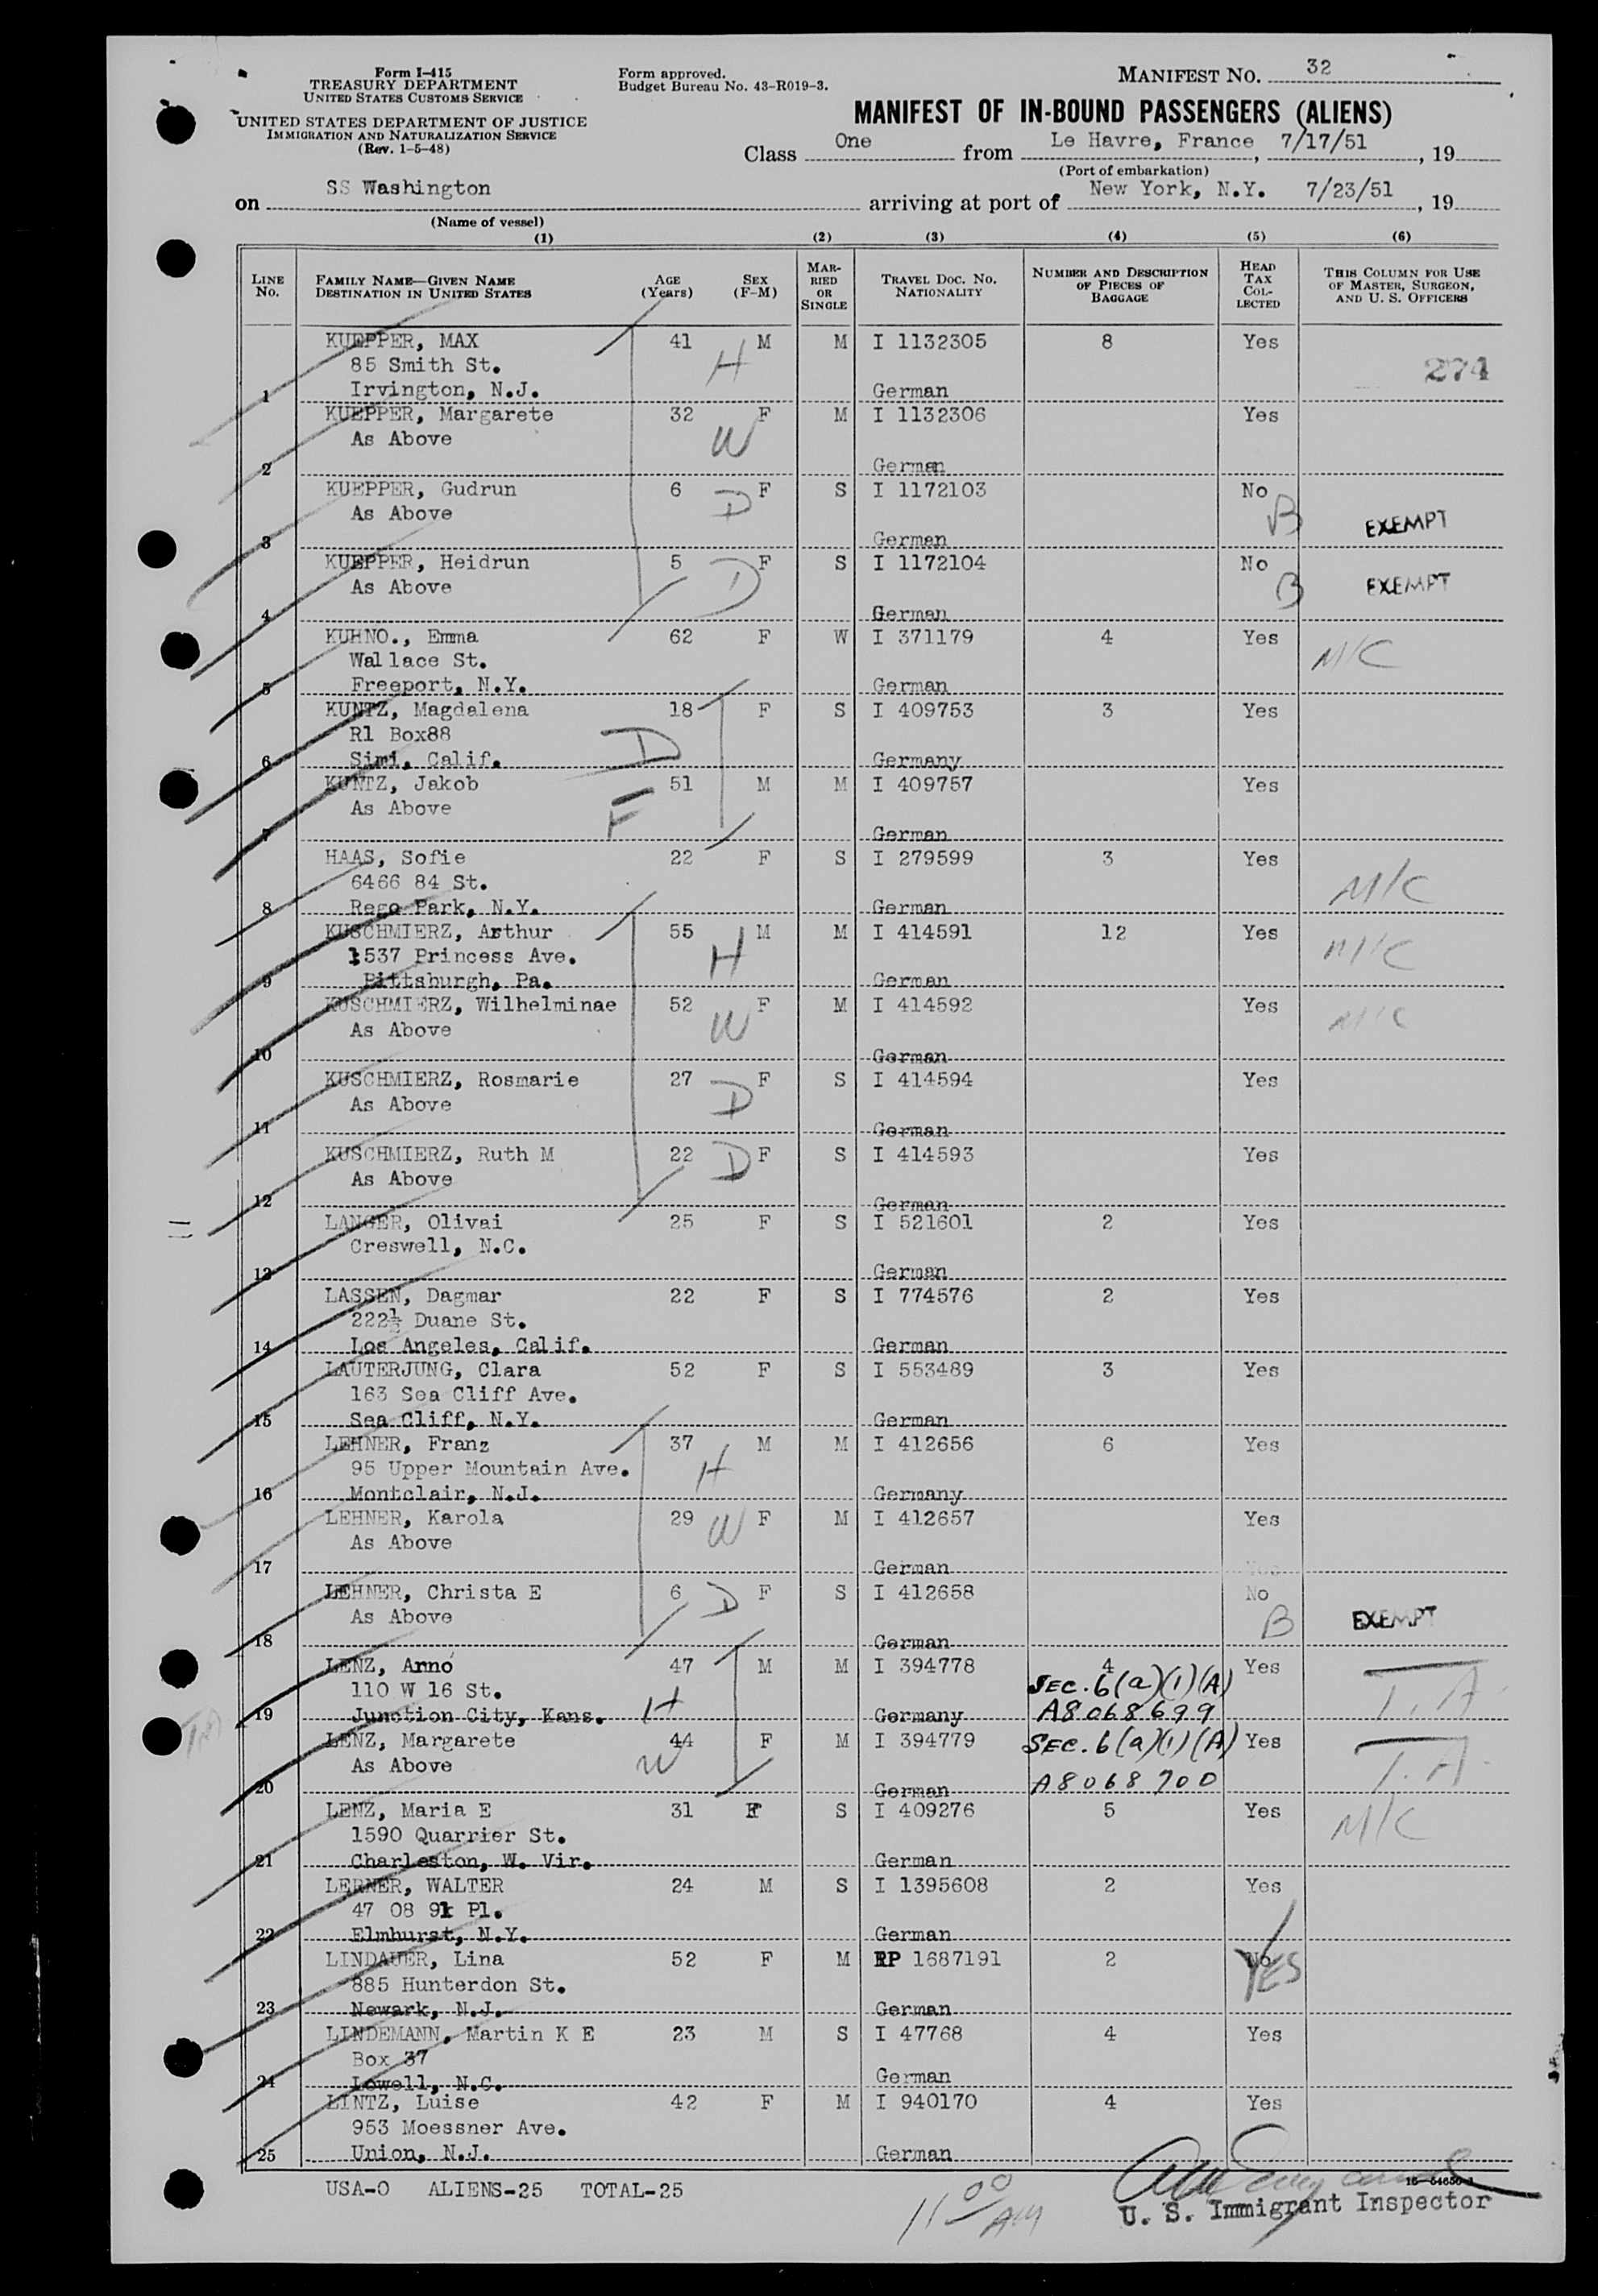 Form I-415
TREASURY DEPARTMENT
UNITED STATES CUSTOMS SERVICE
UNITED STATES DEPARTMENT OF JUSTICE
IMMIGRATION AND NATURALIZATION SERVICE
(Rev. 1-5-48)
Form approved.
Budget Bureau No. 43-R019-3.
MANIFEST NO. 32
MANIFEST OF IN-BOUND PASSENGERS (ALIENS)
Class One from Le Havre, France, 7/17/51, 19
(Port of embarkation)
on SS Washington arriving at port of New York, N.Y. 7/23/51, 19
(Name of vessel)
(1) (2) (3) (4) (5) (6)
LINE NO. FAMILY NAME—GIVEN NAME DESTINATION IN UNITED STATES AGE (Years) SEX (F-M) MARRIED OR SINGLE TRAVEL DOC. NO. NATIONALITY NUMBER AND DESCRIPTION OF PIECES OF BAGGAGE HEAD TAX COLLECTED THIS COLUMN FOR USE OF MASTER, SURGEON, AND U. S. OFFICERS
KUEPPER, MAX 41 M M I 1132305 8 Yes
85 Smith St. H 274
1 Irvington, N.J. German
KUEPPER, Margarete 32 F M I 1132306 Yes
As Above W
2 German
KUEPPER, Gudrun 6 F S I 1172103 No
As Above D B EXEMPT
3 German
KUEPPER, Heidrun 5 F S I 1172104 No
As Above D B EXEMPT
4 German
KUHNO., Emma 62 F W I 371179 4 Yes
Wallace St. M/C
5 Freeport, N.Y. German
KUNTZ, Magdalena 18 F S I 409753 3 Yes
R1 Box88 D
6 Simi, Calif. Germany
KUNTZ, Jakob 51 M M I 409757 Yes
As Above F
7 German
HAAS, Sofie 22 F S I 279599 3 Yes
6466 84 St. M/C
8 Rego Park, N.Y. German
KUSCHMIERZ, Arthur 55 M M I 414591 12 Yes
1537 Princess Ave. H M/C
9 Pittsburgh, Pa. German
KUSCHMIERZ, Wilhelminae 52 F M I 414592 Yes
As Above W M/C
10 German
KUSCHMIERZ, Rosmarie 27 F S I 414594 Yes
As Above D
11 German
KUSCHMIERZ, Ruth M 22 D F S I 414593 Yes
As Above
12 German
LANGER, Olivai 25 F S I 521601 2 Yes
Creswell, N.C.
13 German
LASSEN, Dagmar 22 F S I 774576 2 Yes
222½ Duane St.
14 Los Angeles, Calif. German
LAUTERJUNG, Clara 52 F S I 553489 3 Yes
163 Sea Cliff Ave.
15 Sea Cliff, N.Y. German
LEHNER, Franz 37 M M I 412656 6 Yes
95 Upper Mountain Ave. H
16 Montclair, N.J. Germany
LEHNER, Karola 29 W F M I 412657 Yes
As Above
17 German
LEHNER, Christa E 6 D F S I 412658 No
As Above B EXEMPT
18 German
LENZ, Arno 47 M M I 394778 4 Yes
110 W 16 St. H SEC. 6(a)(1)(A) T.A.
19 Junction City, Kans. Germany A8068699
LENZ, Margarete 44 F M I 394779 SEC. 6(a)(1)(A) Yes
As Above W T.A.
20 German A8068700
LENZ, Maria E 31 F S I 409276 5 Yes
1590 Quarrier St. M/C
21 Charleston, W. Vir. German
LERNER, WALTER 24 M S I 1395608 2 Yes
47 08 91 Pl.
22 Elmhurst, N.Y. German
LINDAUER, Lina 52 F M RP 1687191 2 No YES
885 Hunterdon St.
23 Newark, N.J. German
LINDEMANN, Martin K E 23 M S I 47768 4 Yes
Box 37
24 Lowell, N.C. German
LINTZ, Luise 42 F M I 940170 4 Yes
953 Moessner Ave.
25 Union, N.J. German
USA-0 ALIENS-25 TOTAL-25
11 00 AM
U. S. Immigrant Inspector